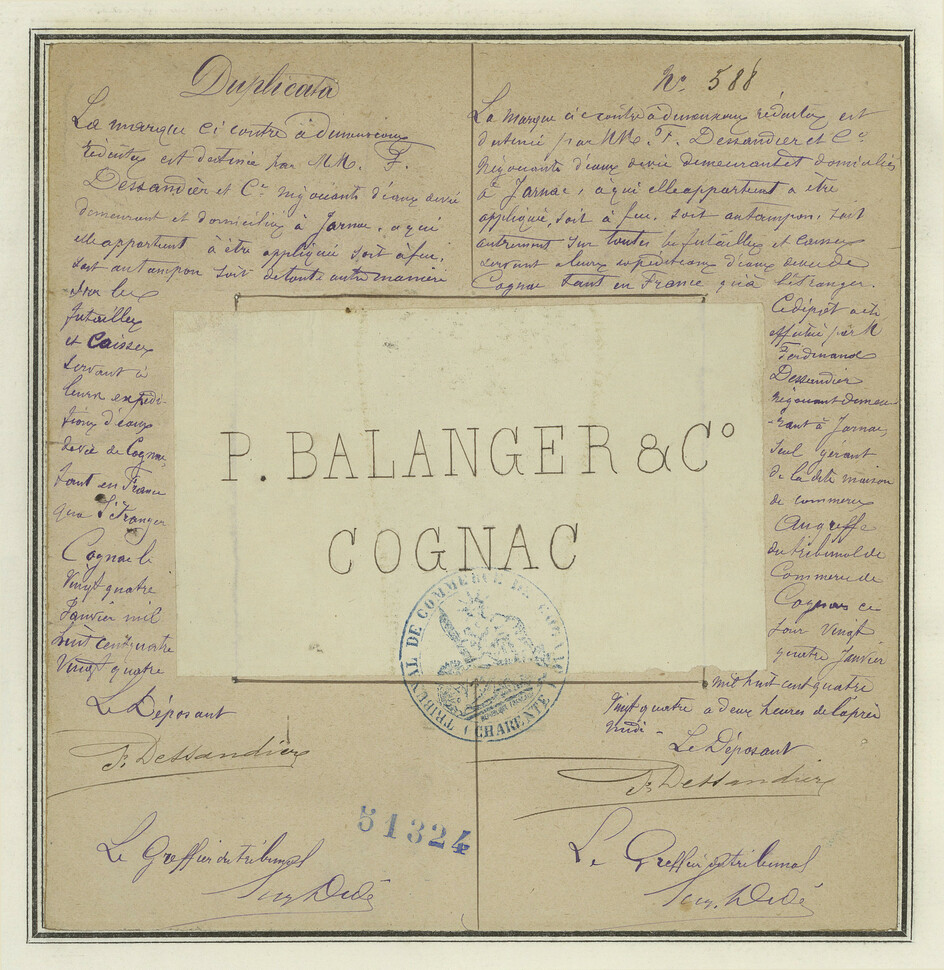 Duplicata
La marque ci contre à dimensions
réduites est destinée par MM. F.
Dessandier et Cie négociants d'eaux de vie
demeurant et domiciliés à Jarnac, a qui
elle appartient à être appliqué soit à feu,
soit au tampon soit de toute autre manière
sur les
futailles
et Caisses
servant à
leurs expédi-
tions d'eaux
de vie de Cognac,
tant en France
qua l'Etranger
Cognac le
Vingt quatre
Janvier mil
huit cent quatre
Vingt quatre
Le Déposant
F. Dessandier
Le Greffier du tribunal
No 588
La marque ci contre à dimensions réduites est
destinée par MM. F. Dessandier et Co
Négociants d'eaux de vie demeurant et domiciliés
à Jarnac, a qui elle appartient a être
appliqué, soit à feu, soit au tampon, soit
autrement sur toutes les futailles et caisses
servant a leurs expéditions d'eaux de vie de
Cognac tant en France qu'à l'étranger.
Ce dépôt a été
effectué par M
Ferdinand
Dessandier
Négociant demeu
-rant à Jarnac,
seul gérant
de la dite maison
de commerce
Au greffe
du tribunal de
Commerce de
Cognac ce
jour vingt
quatre Janvier
mil huit cent quatre
Vingt quatre a deux heures de l'après
midi -
Le Déposant
F. Dessandier
Le Greffier du tribunal
P. BALANGER & Co
COGNAC
TRIBUNAL DE COMMERCE DE COGNAC
CHARENTE
51324